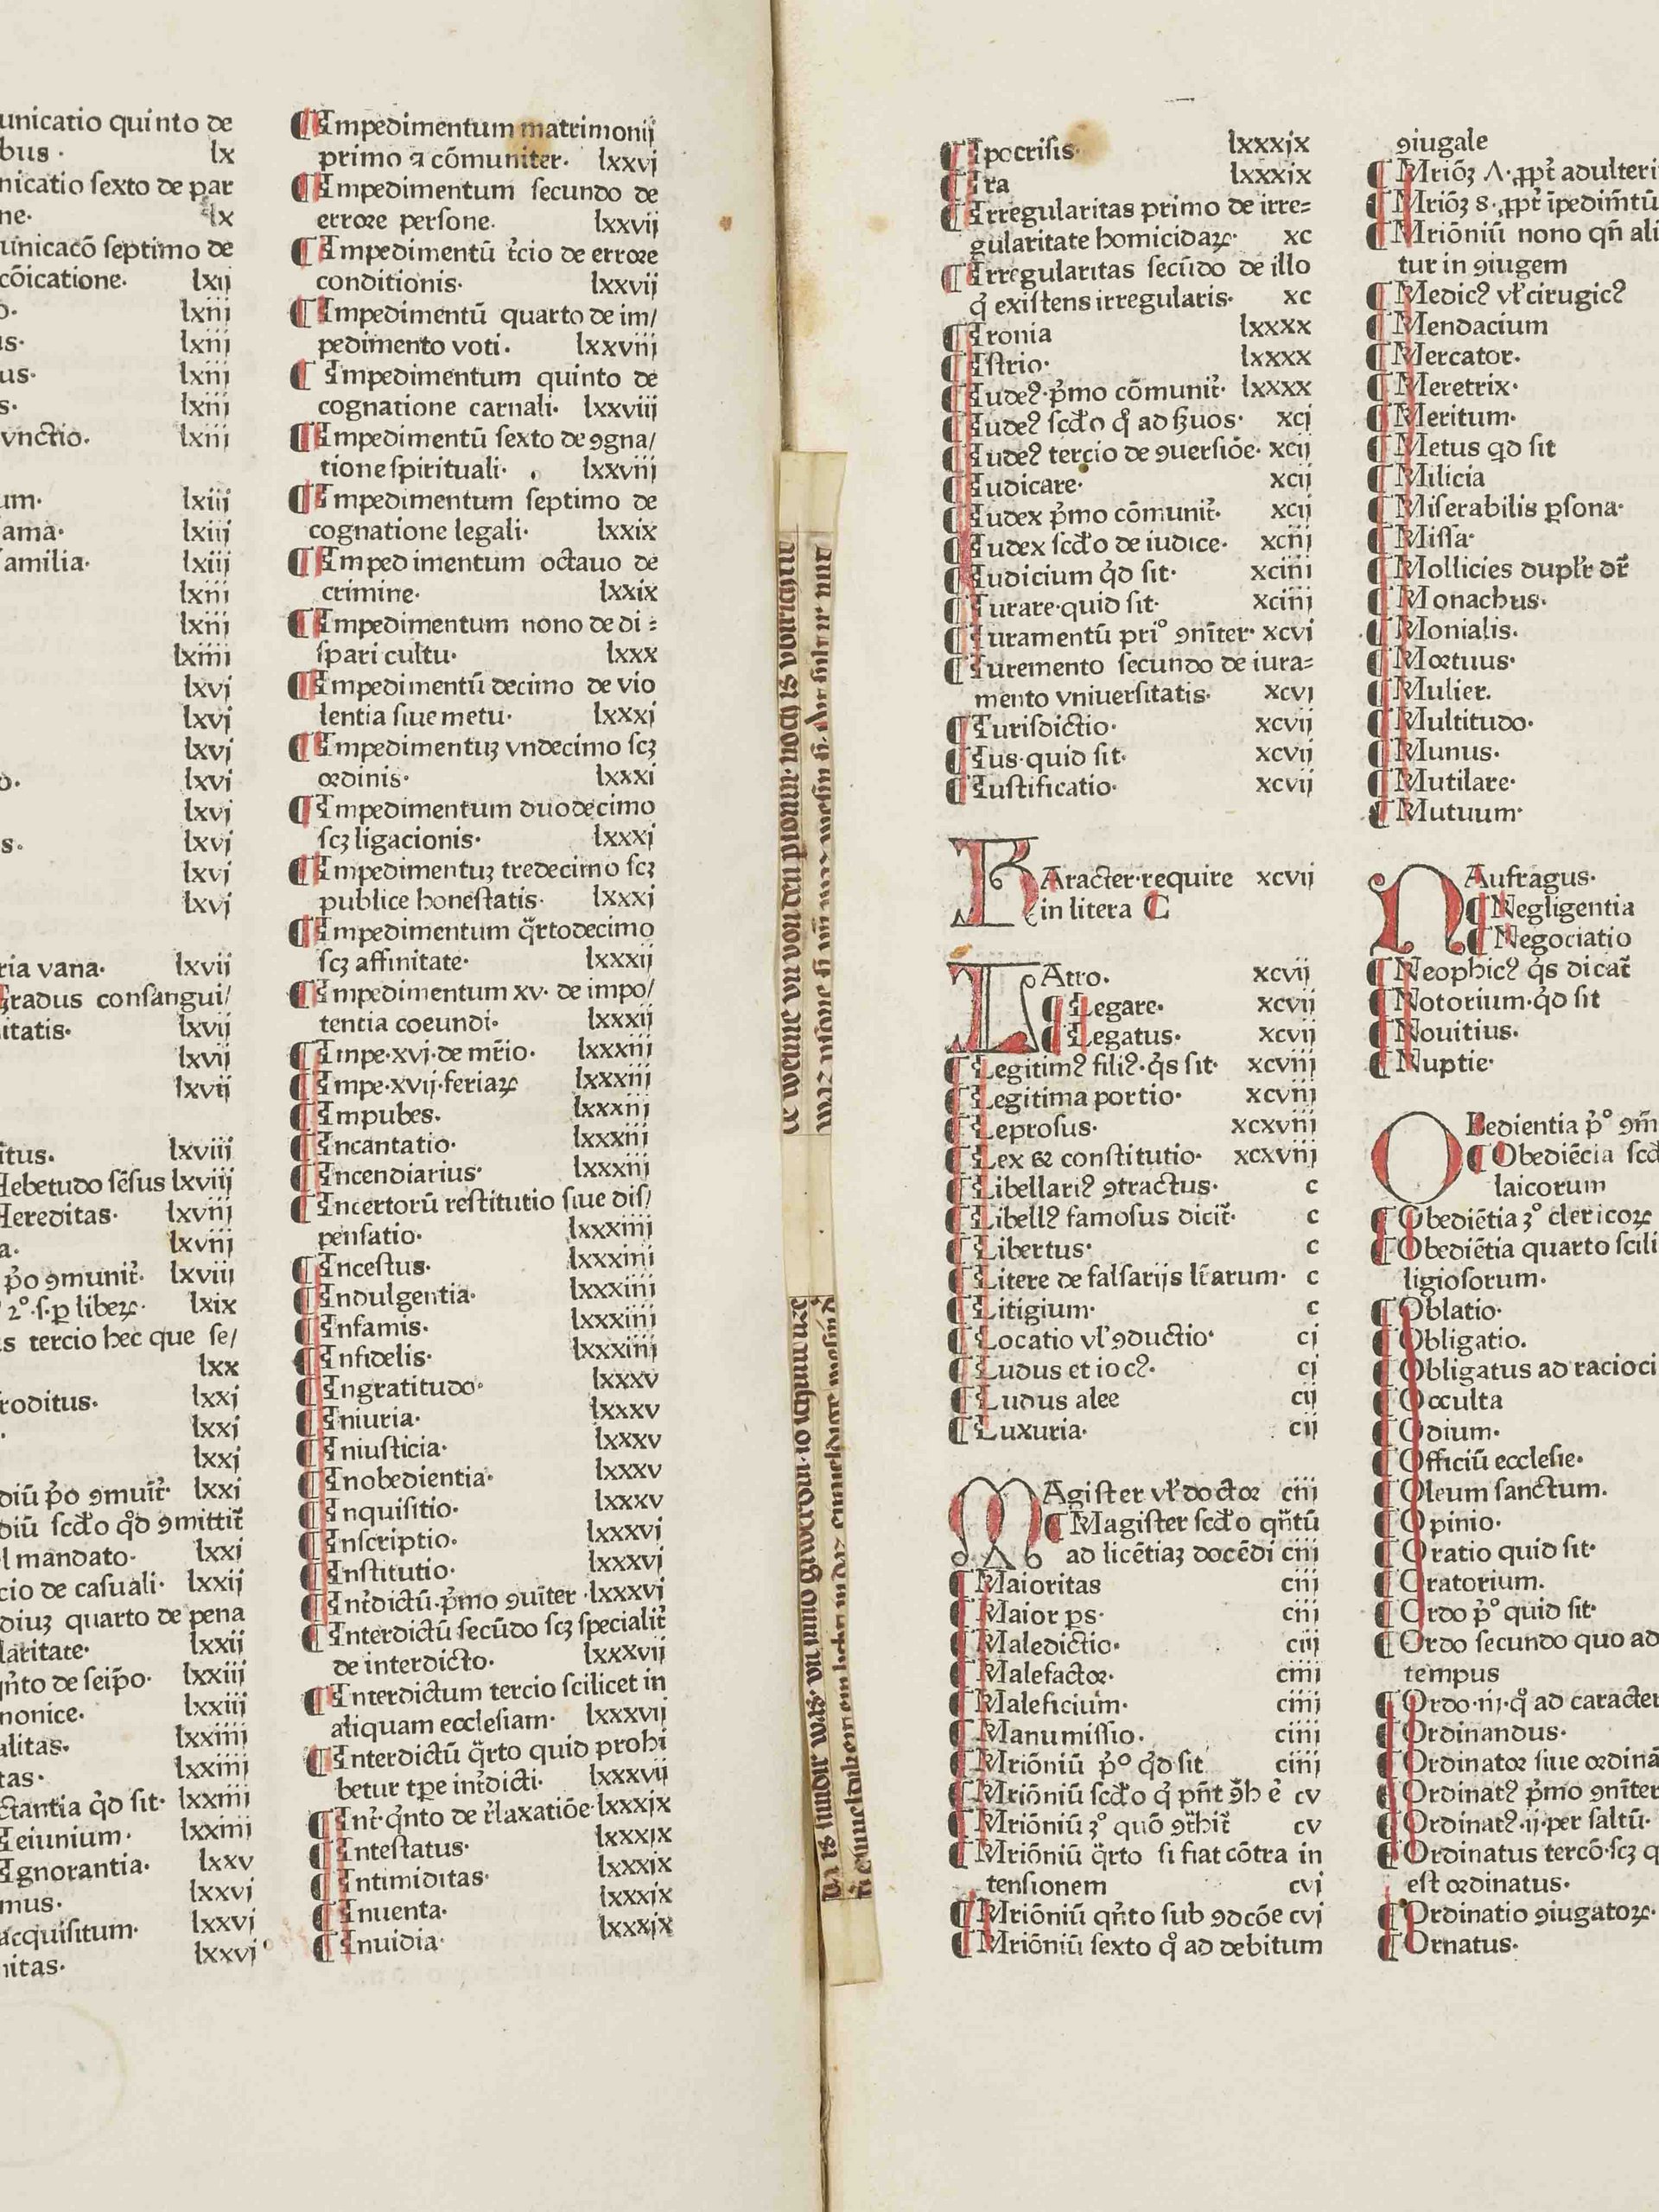 unicatio quinto de
bus · lx
nicatio sexto de par
ne· lx
unicacō septimo de
cōicatione· lxij
o· lxiij
us· lxiij
us· lxiij
s· lxiij
vnctio. lxiij
um· lxiij
ama· lxiij
familia· lxiij
lxiij
lxiij
lxiiij
lxvj
lxvj
lxvj
o. lxvj
lxvj
s. lxvj
lxvj
lxvj
ria vana· lxvij
Gradus consangui/
itatis· lxvij
lxvij
lxvij
itus. lxviij
Hebetudo sēsus lxviij
Hereditas· lxviij
a· lxviij
p̄o ꝯmunit̄· lxviij
2°·s·ꝑ libeꝝ· lxix
s tercio hec que se/
lxx
roditus. lxxj
. lxxj
lxxj
diū p̄o ꝯmuit̄· lxxj
diū scd̄o qd̄ ꝯmittit̄
l mandato· lxxj
cio de casuali· lxxij
diuꝫ quarto de pena
laritate· lxxij
qn̄to de seip̄o· lxxiij
nonice. lxxiij
alitas. lxxiiij
tas· lxxiiij
ctantia qd̄ sit· lxxiiij
Ieiunium· lxxiiij
Ignorantia· lxxv
mus. lxxvj
acquisitum· lxxvj
nitas. lxxvj
¶Impedimentum matrimonij
primo ⁊ cōmuniter· lxxvj
¶Impedimentum secundo de
errore persone. lxxvij
¶Impedimentū t̄cio de errore
conditionis· lxxvij
¶Impedimentū quarto de im/
pedimento voti· lxxviij
¶Impedimentum quinto de
cognatione carnali· lxxviij
¶Impedimentū sexto de ꝯgna/
tione spirituali· lxxviij
¶Impedimentum septimo de
cognatione legali· lxxix
¶Impedimentum octauo de
crimine· lxxix
¶Impedimentum nono de di⸗
spari cultu· lxxx
¶Impedimentū decimo de vio
lentia siue metu· lxxxj
¶Impedimentuꝫ vndecimo scꝫ
ordinis· lxxxj
¶Impedimentum duodecimo
scꝫ ligacionis· lxxxj
¶Impedimentuꝫ tredecimo scꝫ
publice honestatis· lxxxj
¶Impedimentum q̄rtodecimo
scꝫ affinitate· lxxxij
¶Impedimentum xv· de impo/
tentia coeundi· lxxxij
¶Impe·xvj·de mr̄io· lxxxiij
¶Impe·xvij·feriaꝝ lxxxiij
¶Impubes. lxxxiij
¶Incantatio· lxxxiij
¶Incendiarius· lxxxiij
¶Incertorū restitutio siue dis/
pensatio· lxxxiiij
¶Incestus. lxxxiiij
¶Indulgentia· lxxxiiij
¶Infamis· lxxxiiij
¶Infidelis· lxxxiiij
¶Ingratitudo· lxxxv
¶Iniuria· lxxxv
¶Iniusticia· lxxxv
¶Inobedientia· lxxxv
¶Inquisitio· lxxxv
¶Inscriptio· lxxxvj
¶Institutio· lxxxvj
¶Int̄dictū·p̄mo ꝯuiter· lxxxvj
¶Interdictū secūdo scꝫ specialit̄
de interdicto· lxxxvij
¶Interdictum tercio scilicet in
aliquam ecclesiam· lxxxvij
¶Interdictū q̄rto quid prohi
betur tꝑe int̄dicti· lxxxvij
¶Int̄·qn̄to de r̄laxatiōe· lxxxix
¶Intestatus· lxxxix
¶Intimiditas· lxxxix
¶Inuenta· lxxxix
¶Inuidia· lxxxix
¶Ipocrisis· lxxxix
¶Ira lxxxix
¶Irregularitas primo de irre⸗
gularitate homicidaꝝ· xc
¶Irregularitas secūdo de illo
q̄ existens irregularis· xc
¶Ironia lxxxx
¶Istrio· lxxxx
¶Iudeꝰ·p̄mo cōmunit̄· lxxxx
¶Iudeꝰ scd̄o q̄ ad ẜuos· xcj
¶Iudeꝰ tercio de ꝯuersiōe· xcij
¶Iudicare· xcij
¶Iudex p̄mo cōmunit̄· xcij
¶Iudex scd̄o de iudice· xciij
¶Iudicium qd̄ sit· xciiij
¶Iurare·quid sit· xciiij
¶Iuramentū pri° ꝯnīter· xcvj
¶Iuremento secundo de iura⸗
mento vniuersitatis· xcvj
¶Iurisdictio· xcvij
¶Ius·quid sit· xcvij
¶Iustificatio· xcvij
KAracter·require xcvij
in litera C
LAtro. xcvij
¶Legare· xcvij
¶Legatus· xcvij
¶Legitimꝰ filiꝰ·qs̄ sit· xcviij
¶Legitima portio· xcviij
¶Leprosus· xcxviij
¶Lex et constitutio· xcxviij
¶Libellariꝰ ꝯtractus· c
¶Libellꝰ famosus dicit̄· c
¶Libertus· c
¶Litere de falsarijs lr̄arum· c
¶Litigium· c
¶Locatio vl̄ ꝯductio· cj
¶Ludus et iocꝰ· cj
¶Ludus alee cij
¶Luxuria· cij
MAgister vl̄ doctor ciij
¶Magister scd̄o qn̄tū
ad licētiaꝫ docēdi ciij
¶Maioritas ciij
¶Maior ps· ciij
¶Maledictio· ciij
¶Malefactor· ciiij
¶Maleficium· ciiij
¶Manumissio· ciiij
¶Mriōniū p̄° qd̄ sit ciiij
¶Mriōniū scd̄o q̄ pn̄t ꝯ̄h ē cv
¶Mriōniū ꝫ° quō ꝯt̄hit̄ cv
¶Mriōniū q̄rto si fiat cōtra in
tensionem cvj
¶Mriōniū qn̄to sub ꝯdcōe cvj
¶Mriōniū sexto q̄ ad debitum
ꝯiugale
¶Mriōꝫ Λ·ꝓpt̄ adulteri
¶Mriōꝫ 8·ꝓpt̄ īpedim̄tū
¶Mriōniū nono qn̄ ali
tur in ꝯiugem
¶Medicꝰ vl̄ cirugicꝰ
¶Mendacium
¶Mercator·
¶Meretrix·
¶Meritum·
¶Metus qd sit
¶Milicia
¶Miserabilis ꝑsona·
¶Missa·
¶Mollicies duplr̄ dr̄
¶Monachus·
¶Monialis.
¶Mortuus·
¶Mulier.
¶Multitudo·
¶Munus·
¶Mutilare·
¶Mutuum·
NAufragus·
¶Negligentia
¶Negociatio
¶Neophicꝰ qs̄ dicat̄
¶Notorium·qd̄ sit
¶Nouitius.
¶Nuptie·
OBedientia p̄° ꝯm̄
¶Obediēcia scd
laicorum
¶Obediētia ꝫ° clericoꝝ
¶Obediētia quarto scili
ligiosorum·
¶Oblatio·
¶Obligatio.
¶Obligatus ad racioci
¶Occulta
¶Odium·
¶Officiū ecclesie·
¶Oleum sanctum.
¶Opinio·
¶Oratio quid sit·
¶Oratorium.
¶Ordo p̄° quid sit·
¶Ordo secundo quo ad
tempus
¶Ordo·iij·q̄ ad caracter
¶Ordinandus·
¶Ordinator siue ordinā
¶Ordinatꝰ p̄mo ꝯnīter
¶Ordinatꝰ·ij·per saltū·
¶Ordinatus tercō·scꝫ q
est ordinatus·
¶Ordinatio ꝯiugatoꝝ·
¶Ornatus·